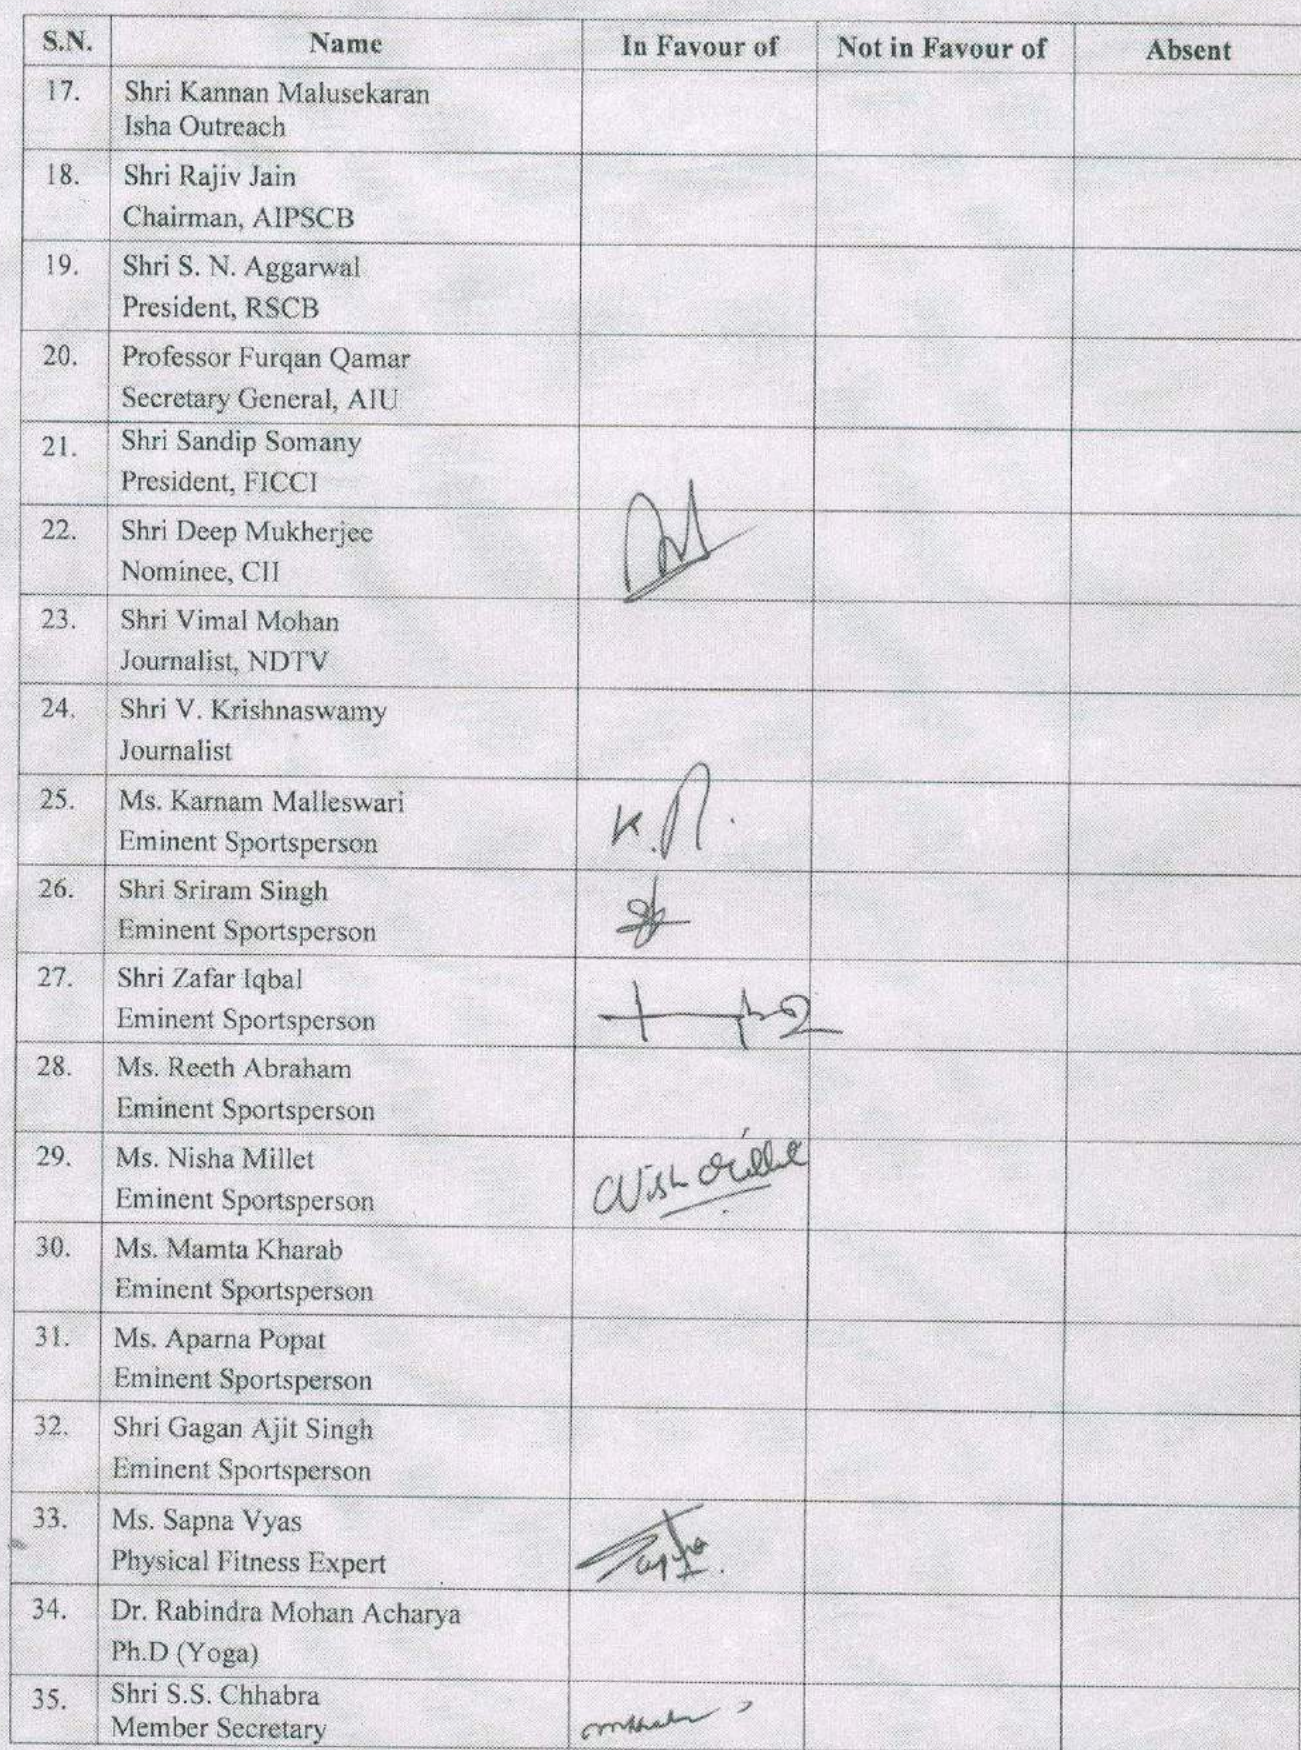 S.N. Name In Favour of Not in Favour of Absent
17. Shri Kannan Malusekaran
Isha Outreach
18. Shri Rajiv Jain
Chairman, AIPSCB
19. Shri S. N. Aggarwal
President, RSCB
20. Professor Furqan Qamar
Secretary General, AIU
21. Shri Sandip Somany
President, FICCI
22. Shri Deep Mukherjee
Nominee, CII
23. Shri Vimal Mohan
Journalist, NDTV
24. Shri V. Krishnaswamy
Journalist
25. Ms. Karnam Malleswari
Eminent Sportsperson
26. Shri Sriram Singh
Eminent Sportsperson
27. Shri Zafar Iqbal
Eminent Sportsperson
28. Ms. Reeth Abraham
Eminent Sportsperson
29. Ms. Nisha Millet
Eminent Sportsperson
30. Ms. Mamta Kharab
Eminent Sportsperson
31. Ms. Aparna Popat
Eminent Sportsperson
32. Shri Gagan Ajit Singh
Eminent Sportsperson
33. Ms. Sapna Vyas
Physical Fitness Expert
34. Dr. Rabindra Mohan Acharya
Ph.D (Yoga)
35. Shri S.S. Chhabra
Member Secretary